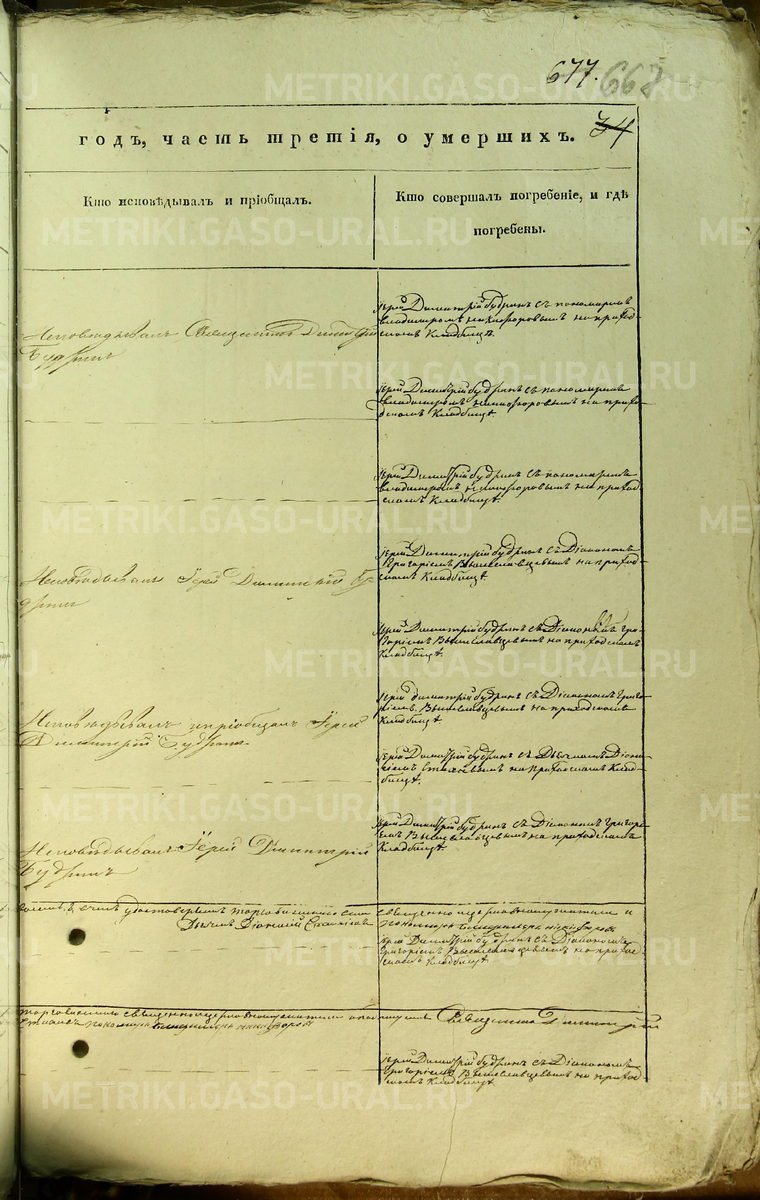 677. 668
годъ, часть третія, о умершихъ. 34
Кто исповѣдывалъ и пріобщалъ.
Кто совершалъ погребеніе, и гдѣ
погребены.
Исповѣдывалъ Священникъ Димитрій
Будринъ
Іерей Димитрій Будринъ съ пономаремъ
Владимиромъ Никифоровымъ на приход-
скомъ Кладбищѣ.
Іерей Димитрій Будринъ съ пономаремъ
Владимиромъ Никифоровымъ на прихо-
дскомъ Кладбищѣ.
Іерей Димитрій Будринъ съ пономаремъ
Владимиромъ Никифоровымъ на приход-
скомъ Кладбищѣ.
Исповѣдывалъ Іерей Димитрій Бу-
дринъ
Іерей Димитрій Будринъ съ Діакономъ
Григоріемъ Вышеславцевымъ на приход-
скомъ Кладбищѣ
Іерей Димитрій Будринъ съ Діакономъ Гри-
горіемъ Вышеславцевымъ на приходскомъ
Кладбищѣ.
Исповѣдывалъ и пріобщалъ Іерей
Димитрій Будринъ.
Іерей Димитрій Будринъ съ Діакономъ Григо-
ріемъ Вышеславцевымъ на приходскомъ
Кладбищѣ
Іерей Димитрій Будринъ съ Дьячкомъ Діони-
сіемъ на приходскомъ Клад-
бищѣ.
Исповѣдывалъ Іерей Димитрій
Будринъ
Іерей Димитрій Будринъ съ Діакономъ Григорі-
емъ Вышеславцевымъ на приходскомъ
Кладбищѣ.
въ чемъ удостовѣряемъ священно церковнослужители
Дьячекъ Діонисій
Іерей Димитрій Будринъ съ Діакономъ
Григоріемъ Вышеславцевымъ на приход-
скомъ Кладбищѣ.
священно церковнослужители Священникъ Димитрій
Іерей Димитрій Будринъ съ Діакономъ
Григоріемъ Вышеславцевымъ на приход-
скомъ Кладбищѣ.
METRIKI.GASO-URAL.RU